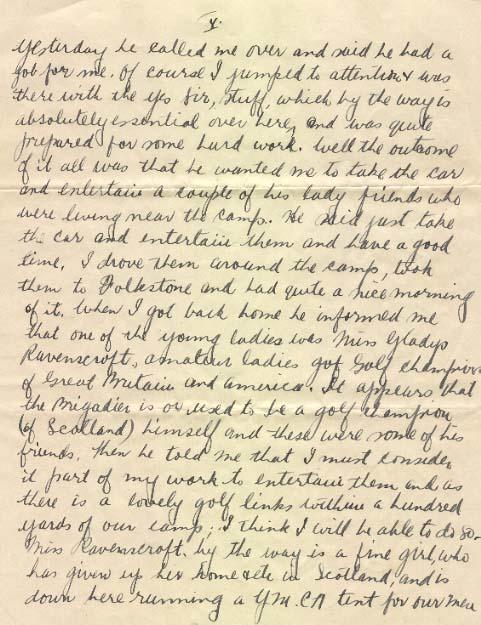 V.
Yesterday he called me over and said he had a
job for me. Of course I jumped to attention & was
there with the yes Sir, stuff, which by the way is
absolutely essential over here, and was quite
prepared for some hard work. Well the outcome
of it all was that he wanted me to take the car
and entertain a couple of his lady friends who
were living near the camp. He said just take
the car and entertain them and have a good
time. I drove them around the camp, took
them to Folkestone and had quite a nice morning
of it. When I got back home he informed me
that one of the young ladies was Miss Gladys
Ravenscroft, amateur ladies gof Golf champion
of Great Britain and America. It appears, that
the Brigadier is or used to be a golf champion
(of Scotland) himself and these were some of his
friends. Then he told me that I must consider
it part of my work to entertain them and as
there is a lovely golf links within a hundred
yards of our camp; I think I will be able to do so-
Miss Ravenscroft. by the way is a fine girl, who
has given up her home etc in Scotland, and is
down here running a Y.M.CA tent for our men